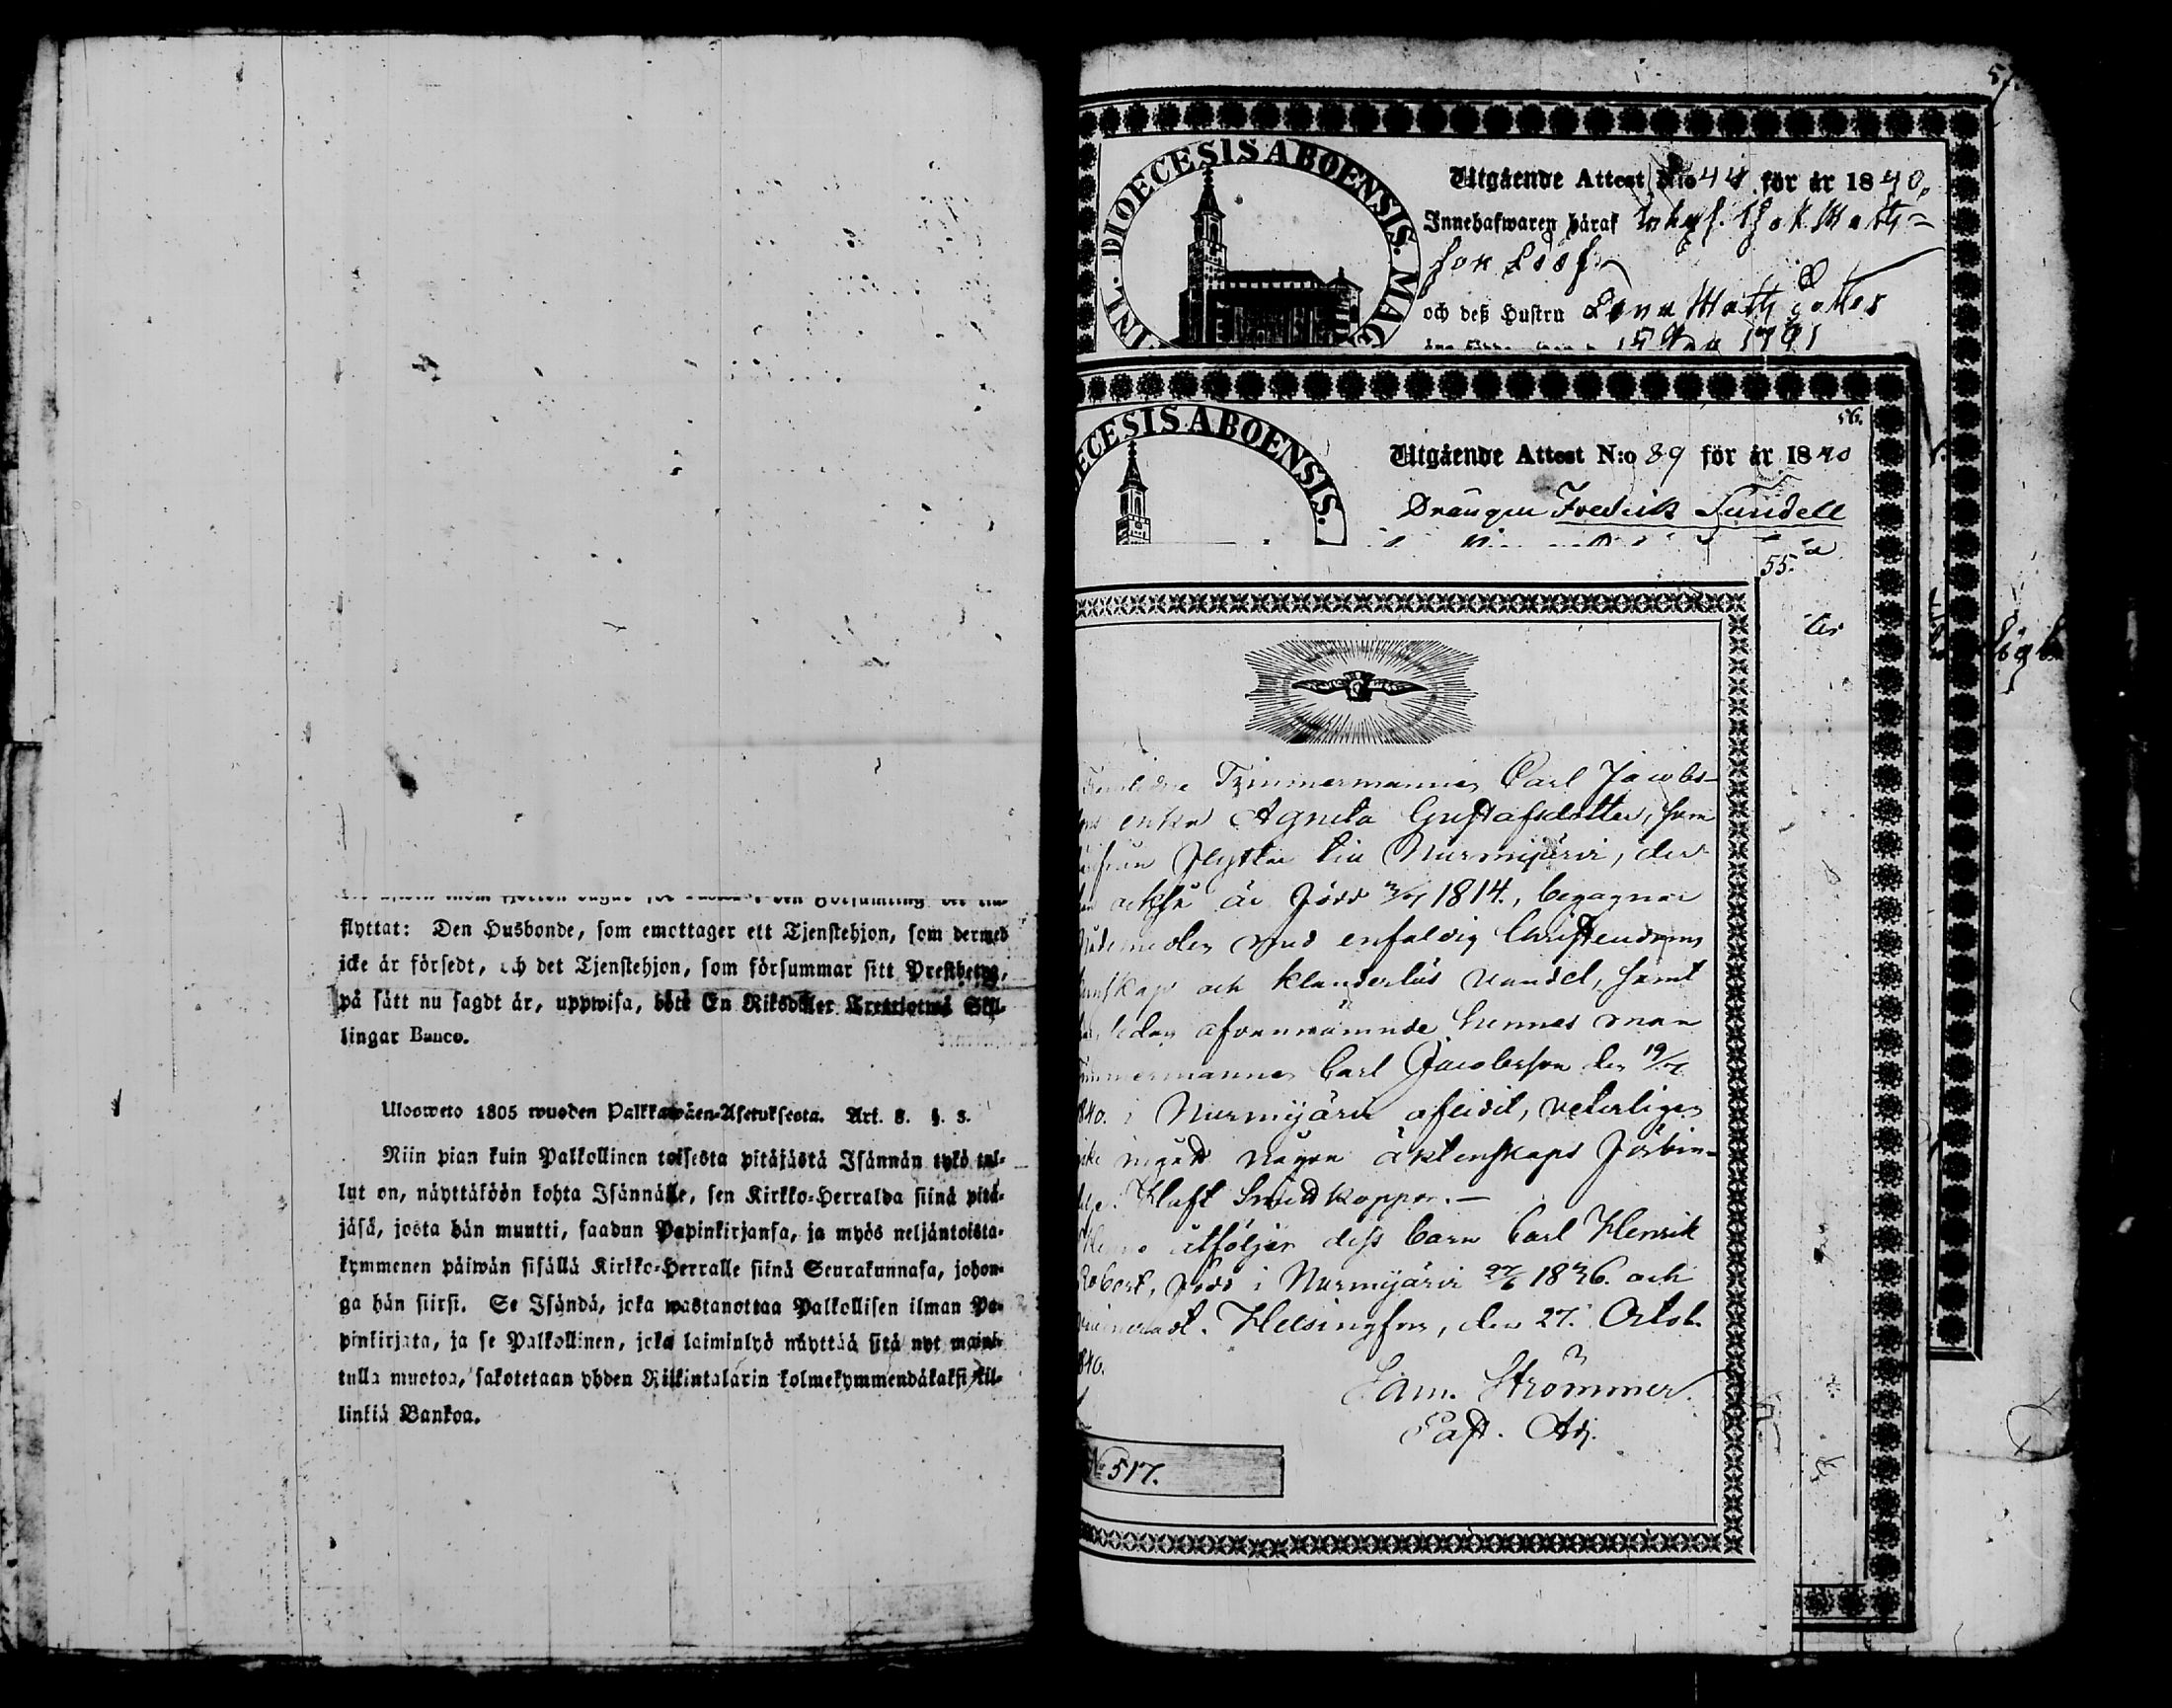 flyttat: Den Husbonde, som emottager ett Tjenstehjon, som dermed
icke är försedt, och det Tjenstehjon, som försummar sitt Prestbetyg,
på sätt nu sagdt är, uppwisa, böte En Riksdaler Trettiotwå Skil-
lingar Banco.
Ulosweto 1805 wuoden Palkkawäen-Asetuksesta. Art. 8. §. 3.
Niin pian kuin Palkollinen toisesta pitäjästä Isännän tykö tul-
lut on, näyttäköön kohta Isännälle, sen Kirkko-Herralda siinä pitä-
jäsä, josta hän muutti, saadun Papinkirjansa, ja myös neljäntoista-
kymmenen päiwän sisällä Kirkko-Herralle siinä Seurakunnasa, johon-
ga hän siirsi. Se Isändä, joka wastanottaa Palkollisen ilman Pa-
pinkirjata, ja se Palkollinen, joka laiminlyö näyttää sitä nyt maini-
tulla muotoa, sakotetaan yhden Riikintalarin kolmekymmendäkaksi skil-
linkiä Bankoa.
57.
DIOECESIS ABOENSIS. MAG
Utgående Attest N:o 44 för år 1840.
Innehafwaren häraf
son Lööf
och deß Hustru Lena Math dotter
1791
56.
ECESIS ABOENSIS.
Utgående Attest N:o 89 för år 1840
Drängen Fredrik Sundell
55.
ter
Timmermannen Carl Jacobs-
enka Agneta Gustafsdotter, som
flyttar till Nurmijärvi, der
också är född 1814., begagnar
Nådemedlen med enfaldig Christendoms
kunskap och klanderlös vandel, samt
sedan ofvannämnde hennes man
Timmermannen Carl Jacobsson den 19/
1840. i Nurmijärvi aflidit, veterligen
icke ingått någon äktenskaps förbin-
delse. Haft Smittkoppor.—
Henne åtföljer dess barn Carl Henrik
Robert, född i Nurmijärvi 27/6 1836. och
vaccinerad. Helsingfors, den 27. Octob.
1840.
Sam. Strömmer.
Past. Adj.
No 517.